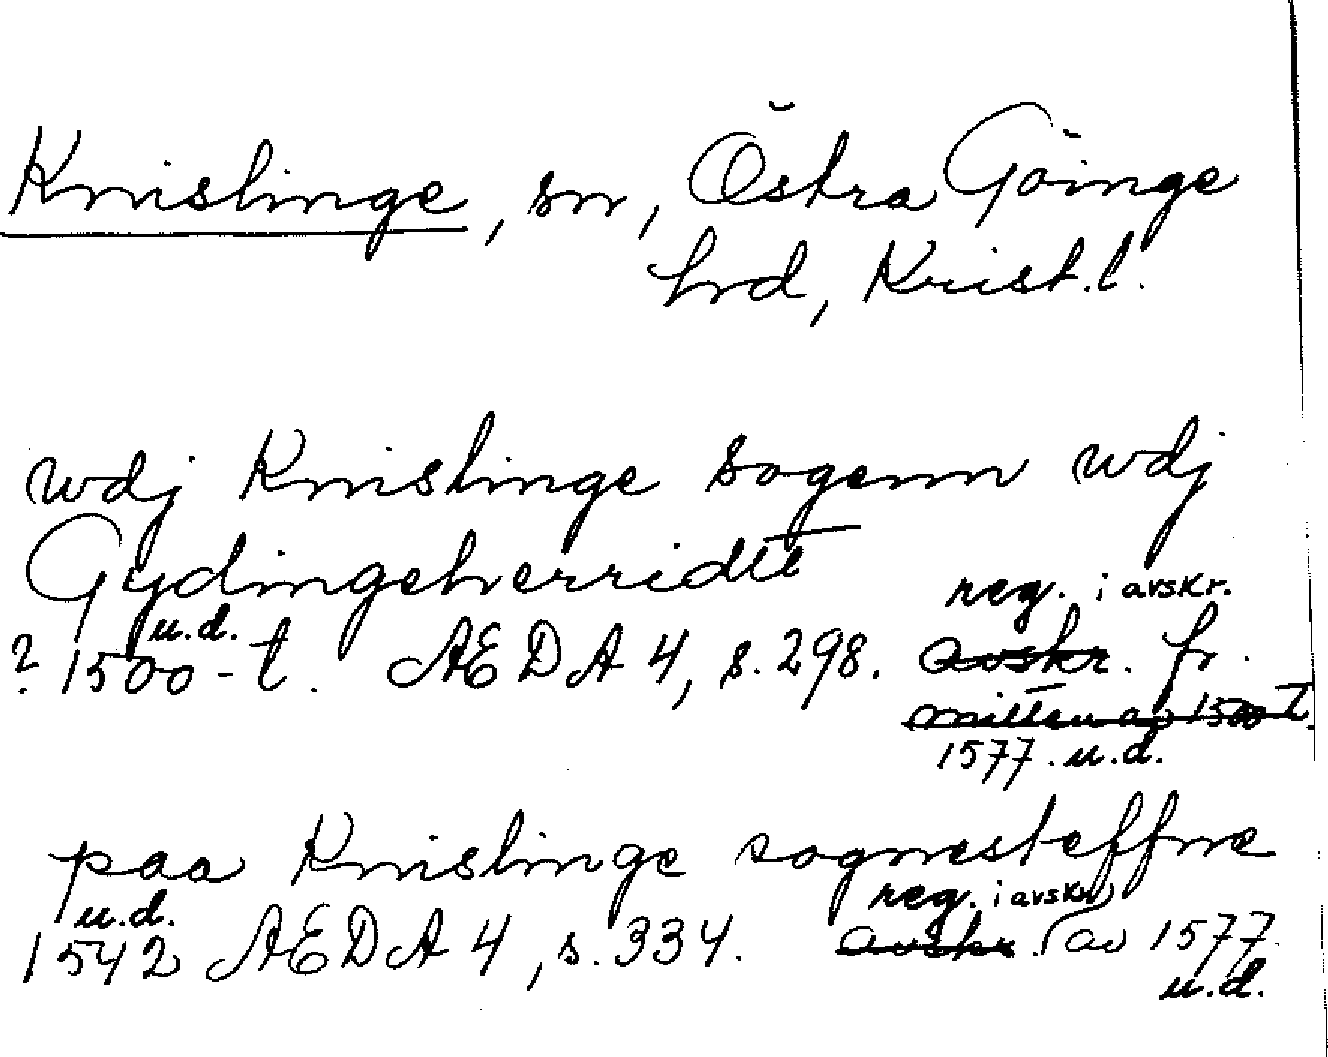 Knislinge, sn, Östra Göinge
hrd, Krist.l.
wdj Knislinge sogenn wdj
Gydingeherridtt
reg. i avskr.
u.d.
? 1500-t. AEDA 4, s.298. avskr. fr.
mitten av 1500 t.
1577. u.d.
paa Knislinge sognesteffne
u.d.
reg. i avskr.
1542 AEDA 4, s.334. avskr. av 1577.
u.d.